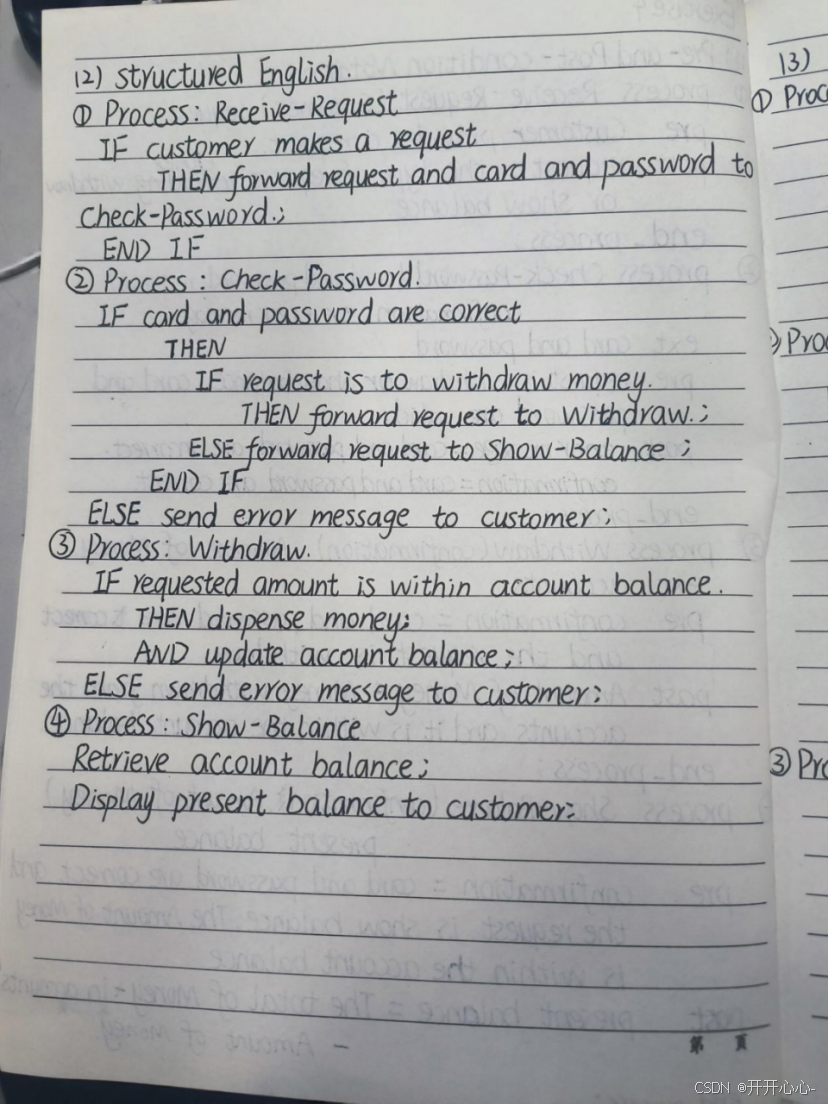 (2) Structured English.
① Process: Receive-Request
IF customer makes a request
THEN forward request and card and password to
Check-Password.;
END IF
② Process: Check-Password.
IF card and password are correct
THEN
IF request is to withdraw money.
THEN forward request to Withdraw.;
ELSE forward request to Show-Balance;
END IF
ELSE send error message to customer;
③ Process: Withdraw.
IF requested amount is within account balance.
THEN dispense money;
AND update account balance;
ELSE send error message to customer;
④ Process: Show-Balance
Retrieve account balance;
Display present balance to customer;
第 頁
(3)
① Proc
Proc
③ Pro
CSDN @开开心心-